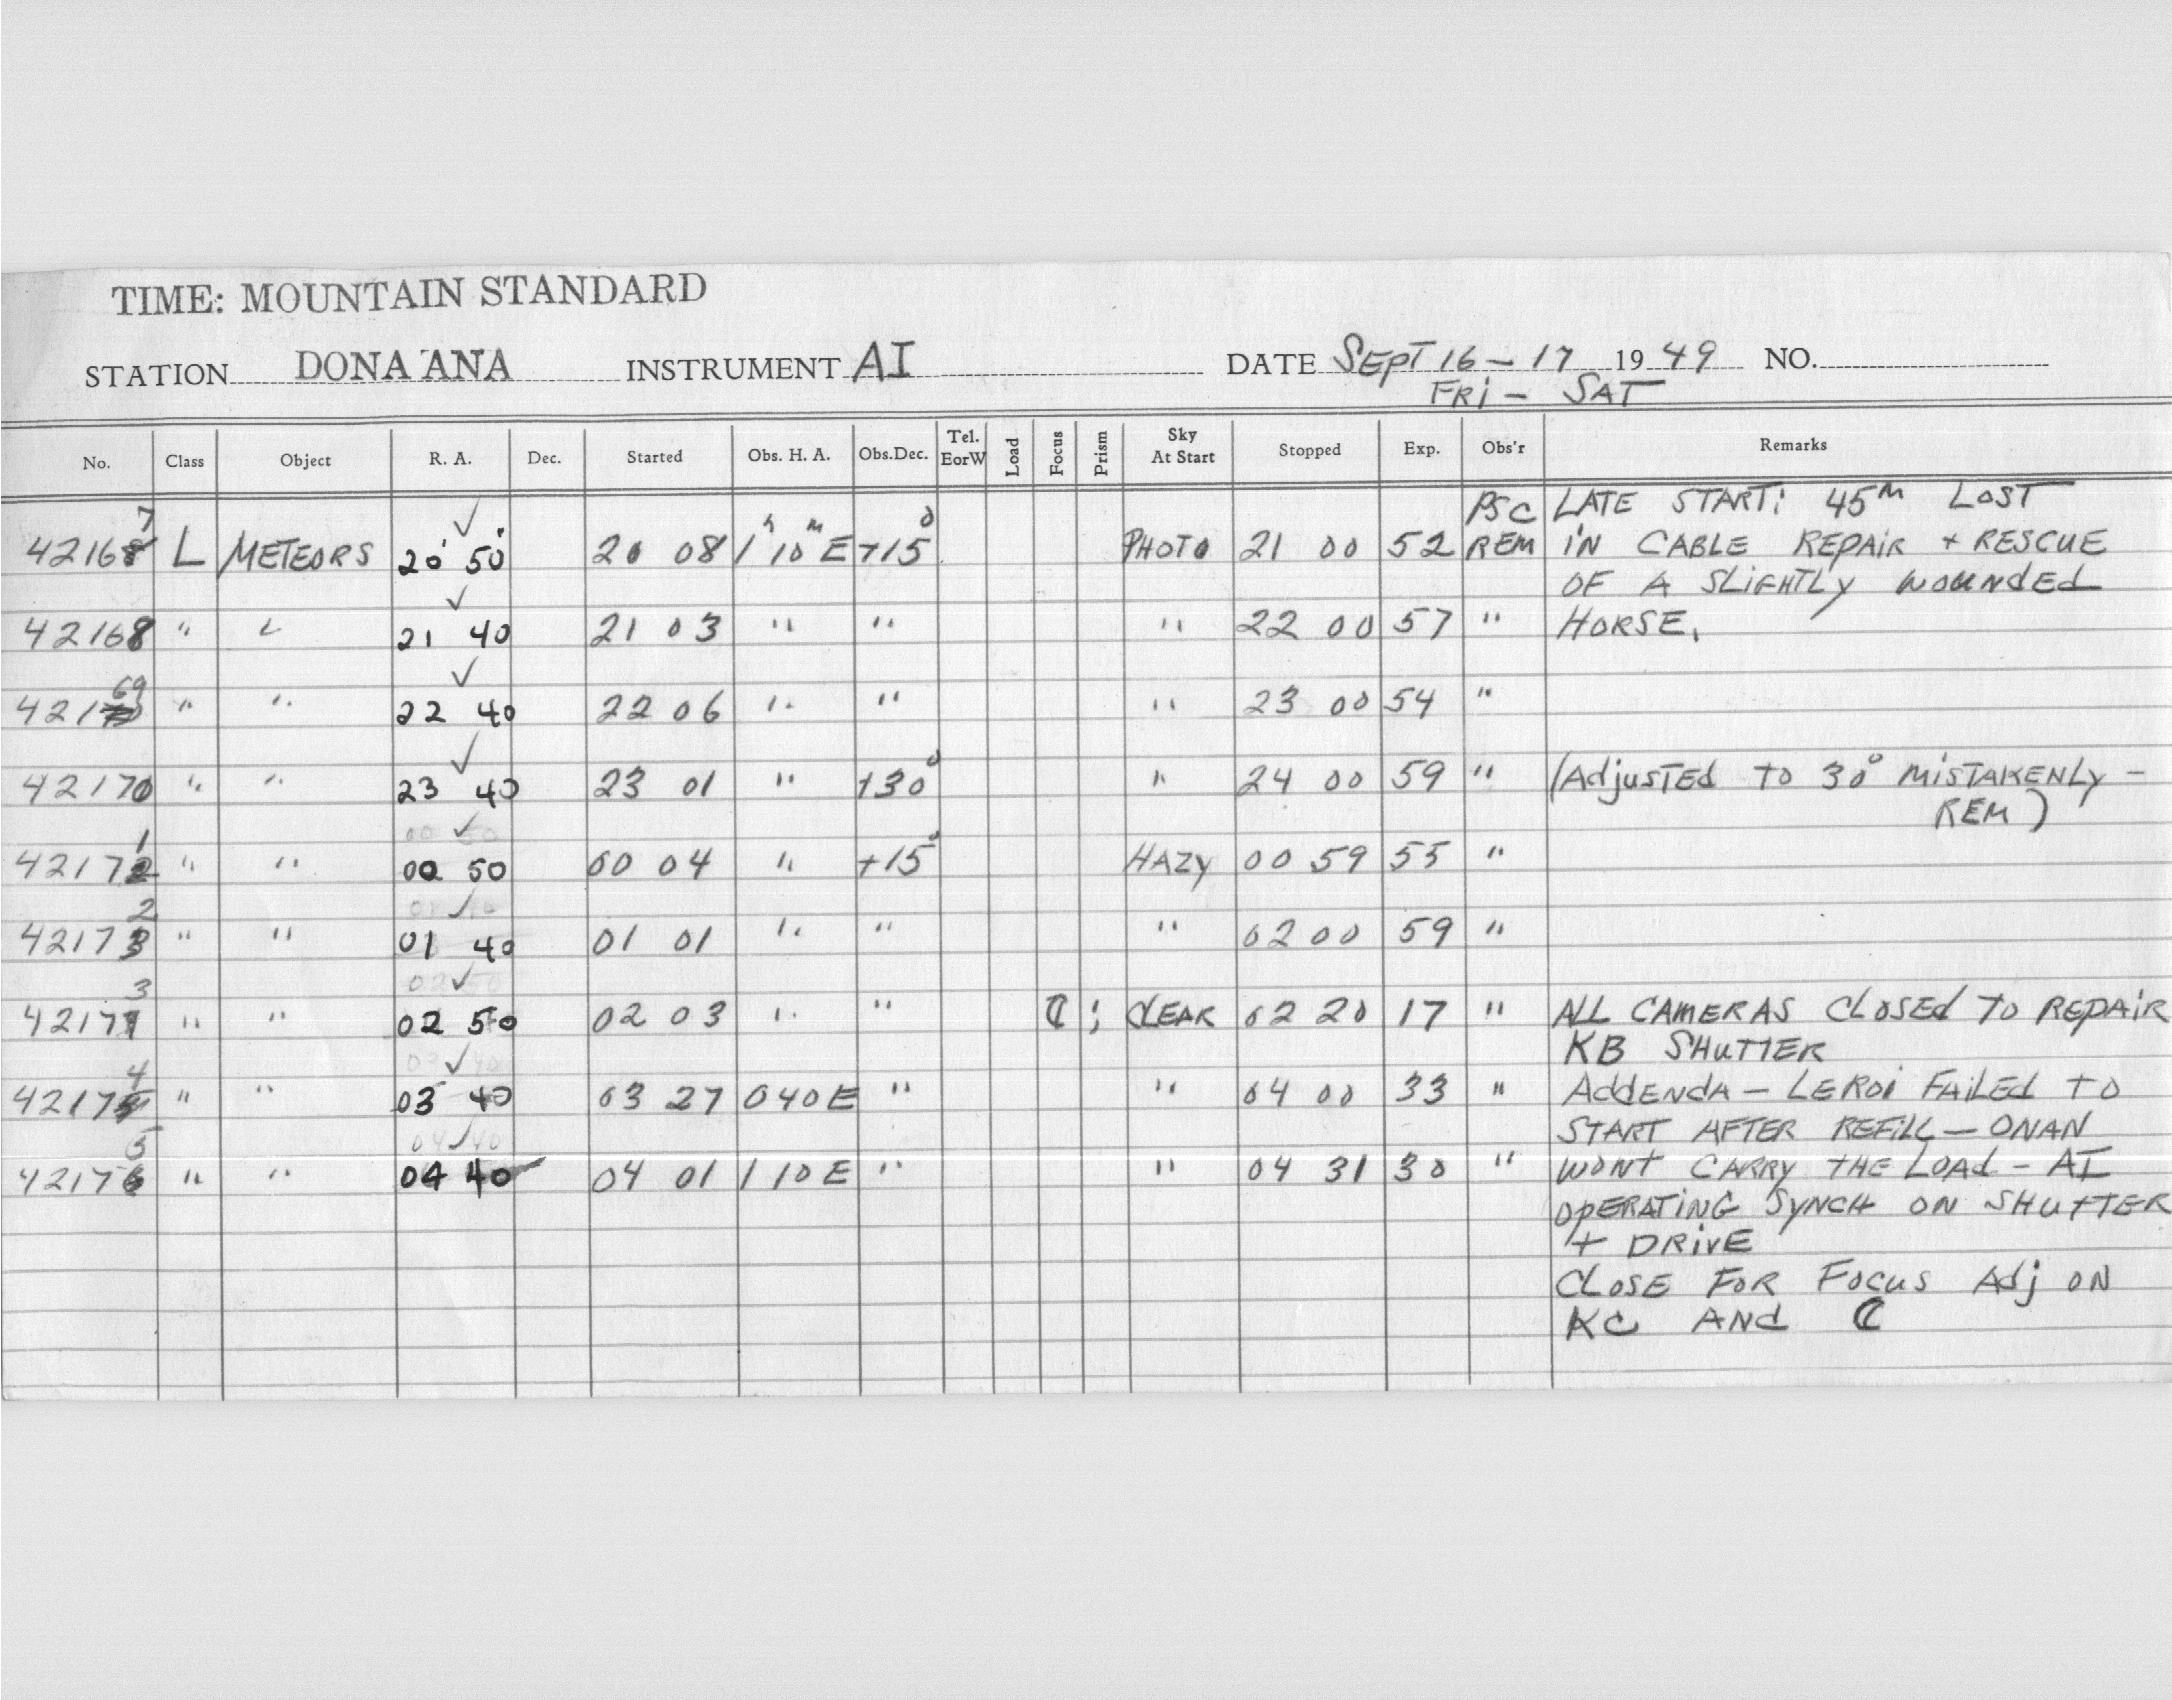 TIME: MOUNTAIN STANDARD
STATION DONA ANA INSTRUMENT AI DATE SEPT 16 - 17 1949 NO.
FRI - SAT
No. Class Object R. A. Dec. Started Obs. H. A. Obs.Dec. Tel. EorW Load Focus Prism Sky At Start Stopped Exp. Obs'r Remarks
42167 L METEORS 20 50 20 08 1h 10m E +15° PHOTO 21 00 52 PSC REM LATE START: 45M LOST
IN CABLE REPAIR + RESCUE
OF A SLIGHTLY WOUNDED
42168 " " 21 40 21 03 " " " 22 00 57 " HORSE.
42169 " " 22 40 22 06 " " " 23 00 54 "
42170 " " 23 40 23 01 " +30° " 24 00 59 " (AdjUSTEd TO 30° MISTAKENLY -
REM)
42171 " " 00 50 00 04 " +15° HAZY 00 59 55 "
42172 " " 01 40 01 01 " " " 02 00 59 "
42173 " " 02 50 02 03 " " ; CLEAR 02 20 17 " ALL CAMERAS CLOSEd TO REPAIR
KB SHUTTER
42174 " " 03 40 03 27 0 40 E " " 04 00 33 " AddENDA - LEROI FAILED TO
START AFTER REFILL - ONAN
42175 " " 04 40 04 01 1 10 E " " 04 31 30 " WONT CARRY THE LOAd - AI
OPERATING SYNCH ON SHUTTER
+ DRIVE
CLOSE FOR FOCUS Adj ON
KC ANd